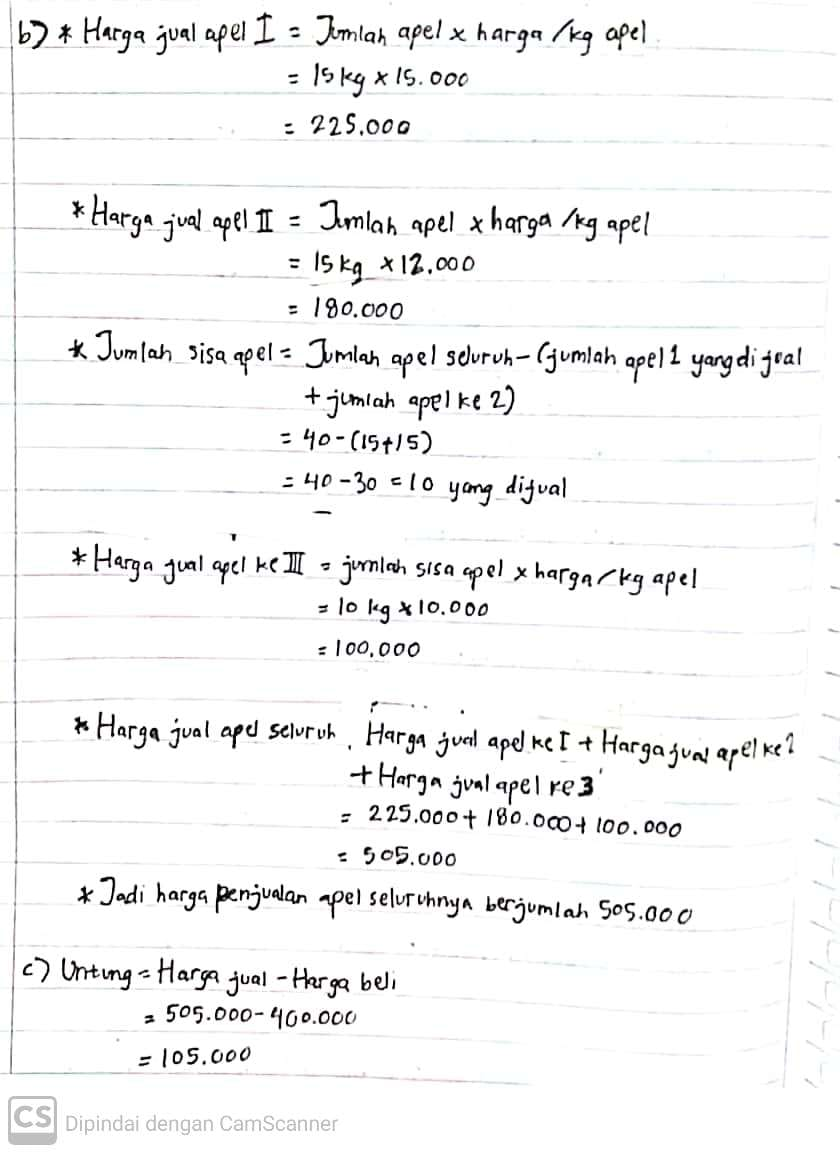 b) * Harga jual apel I = Jumlah apel x harga /kg apel
= 15 kg x 15.000
= 225.000
* Harga jual apel II = Jumlah apel x harga /kg apel
= 15 kg x 12.000
= 180.000
* Jumlah sisa apel = Jumlah apel seluruh - (jumlah apel 1 yang di jual
+ jumlah apel ke 2)
= 40 - (15+15)
= 40 - 30 = 10 yang dijual
* Harga jual apel ke III = jumlah sisa apel x harga /kg apel
= 10 kg x 10.000
= 100.000
* Harga jual apel seluruh, Harga jual apel ke I + Harga jual apel ke 2
+ Harga jual apel ke 3
= 225.000 + 180.000 + 100.000
= 505.000
* Jadi harga penjualan apel seluruhnya berjumlah 505.000
c) Untung = Harga jual - Harga beli
= 505.000 - 400.000
= 105.000
CS Dipindai dengan CamScanner